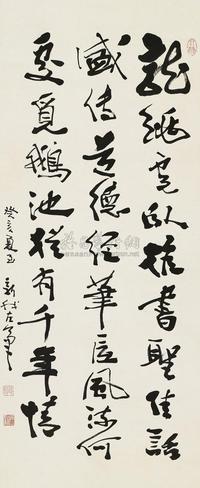 龍跳虎臥推書聖佳話
盛傳道德經筆底風流何
處覓鵝池猶有千年情
癸亥夏 新我左筆